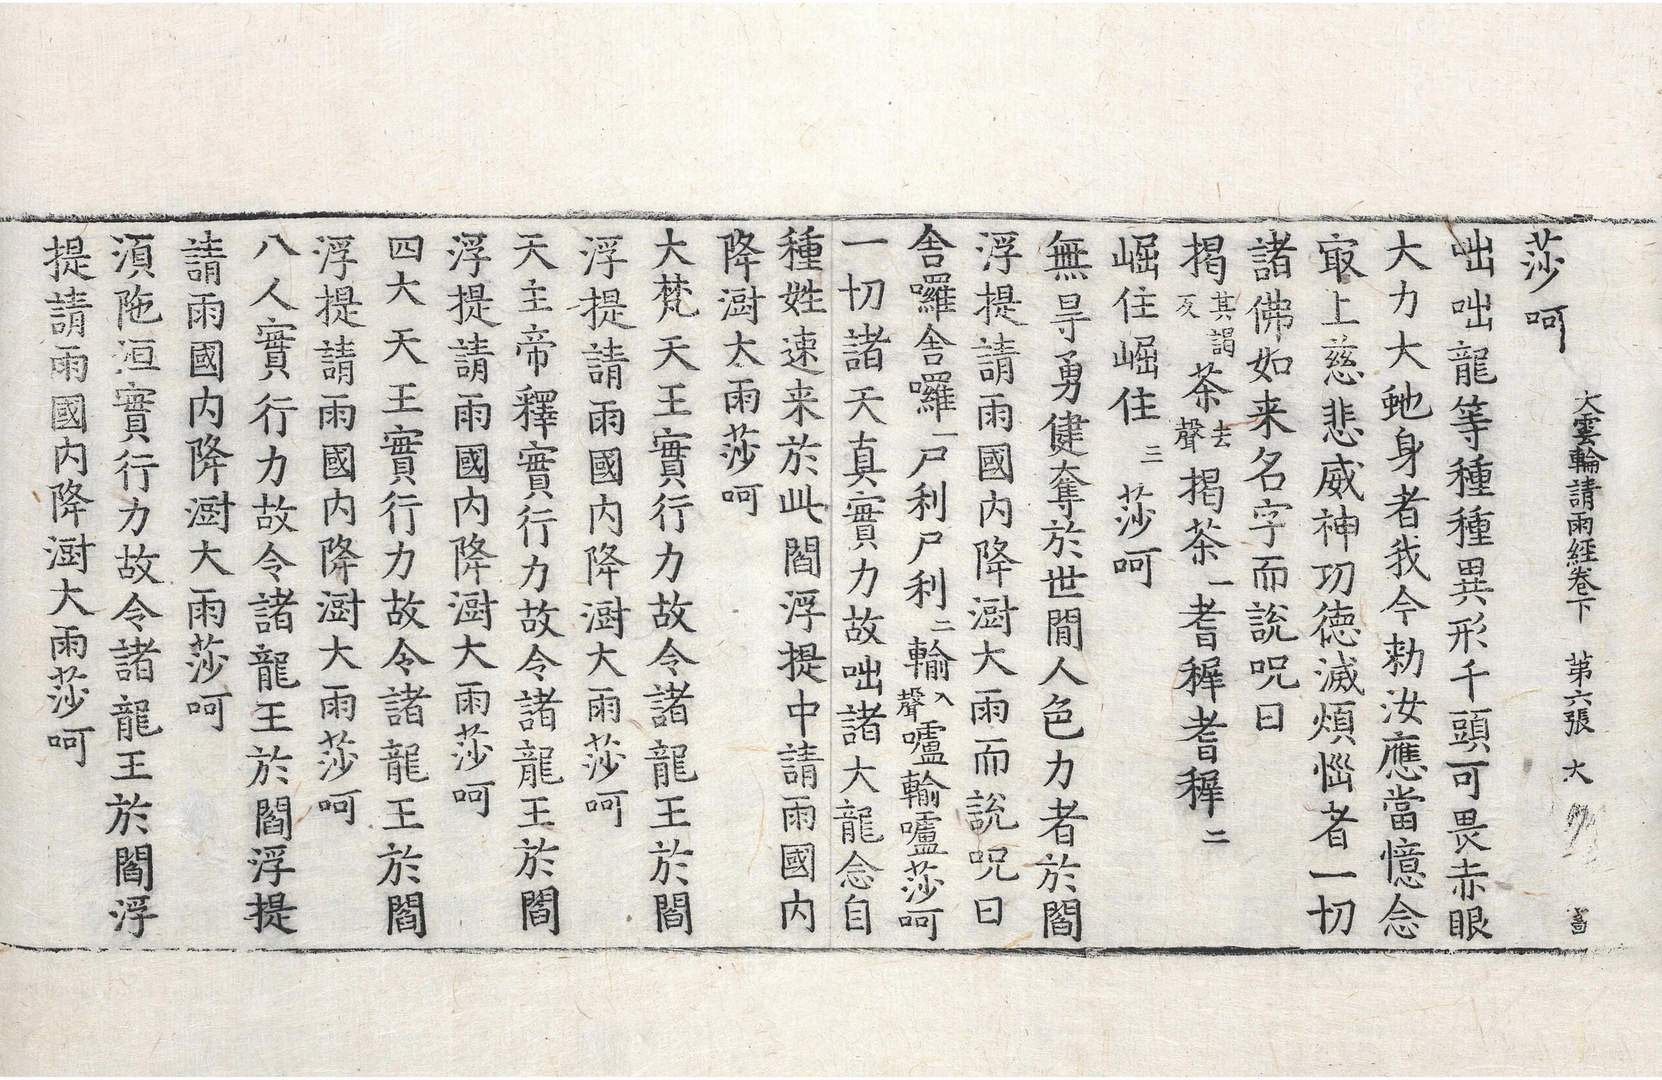 大雲輪請雨經卷下 第六張 大
莎呵
咄咄龍等種種異形千頭可畏赤眼
大力大虵身者我今勑汝應當憶念
㝡上慈悲威神功德滅煩惱者一切
諸佛如来名字而說呪曰
揭其謁反茶去聲揭茶一耆穉耆穉二
崛住崛住三莎呵
無㝵勇健奪於世間人色力者於閻
浮提請雨國内降澍大雨而說呪曰
舎囉舎囉一尸利尸利二輸入聲嚧輸嚧莎呵
一切諸天真實力故咄諸大龍念自
種姓速来於此閻浮提中請雨國内
降澍大雨莎呵
大梵天王實行力故令諸龍王於閻
浮提請雨國内降澍大雨莎呵
天主帝釋實行力故令諸龍王於閻
浮提請雨國内降澍大雨莎呵
四大天王實行力故令諸龍王於閻
浮提請雨國内降澍大雨莎呵
八人實行力故令諸龍王於閻浮提
請雨國内降澍大雨莎呵
湏陁洹實行力故令諸龍王於閻浮
提請雨國内降澍大雨莎呵